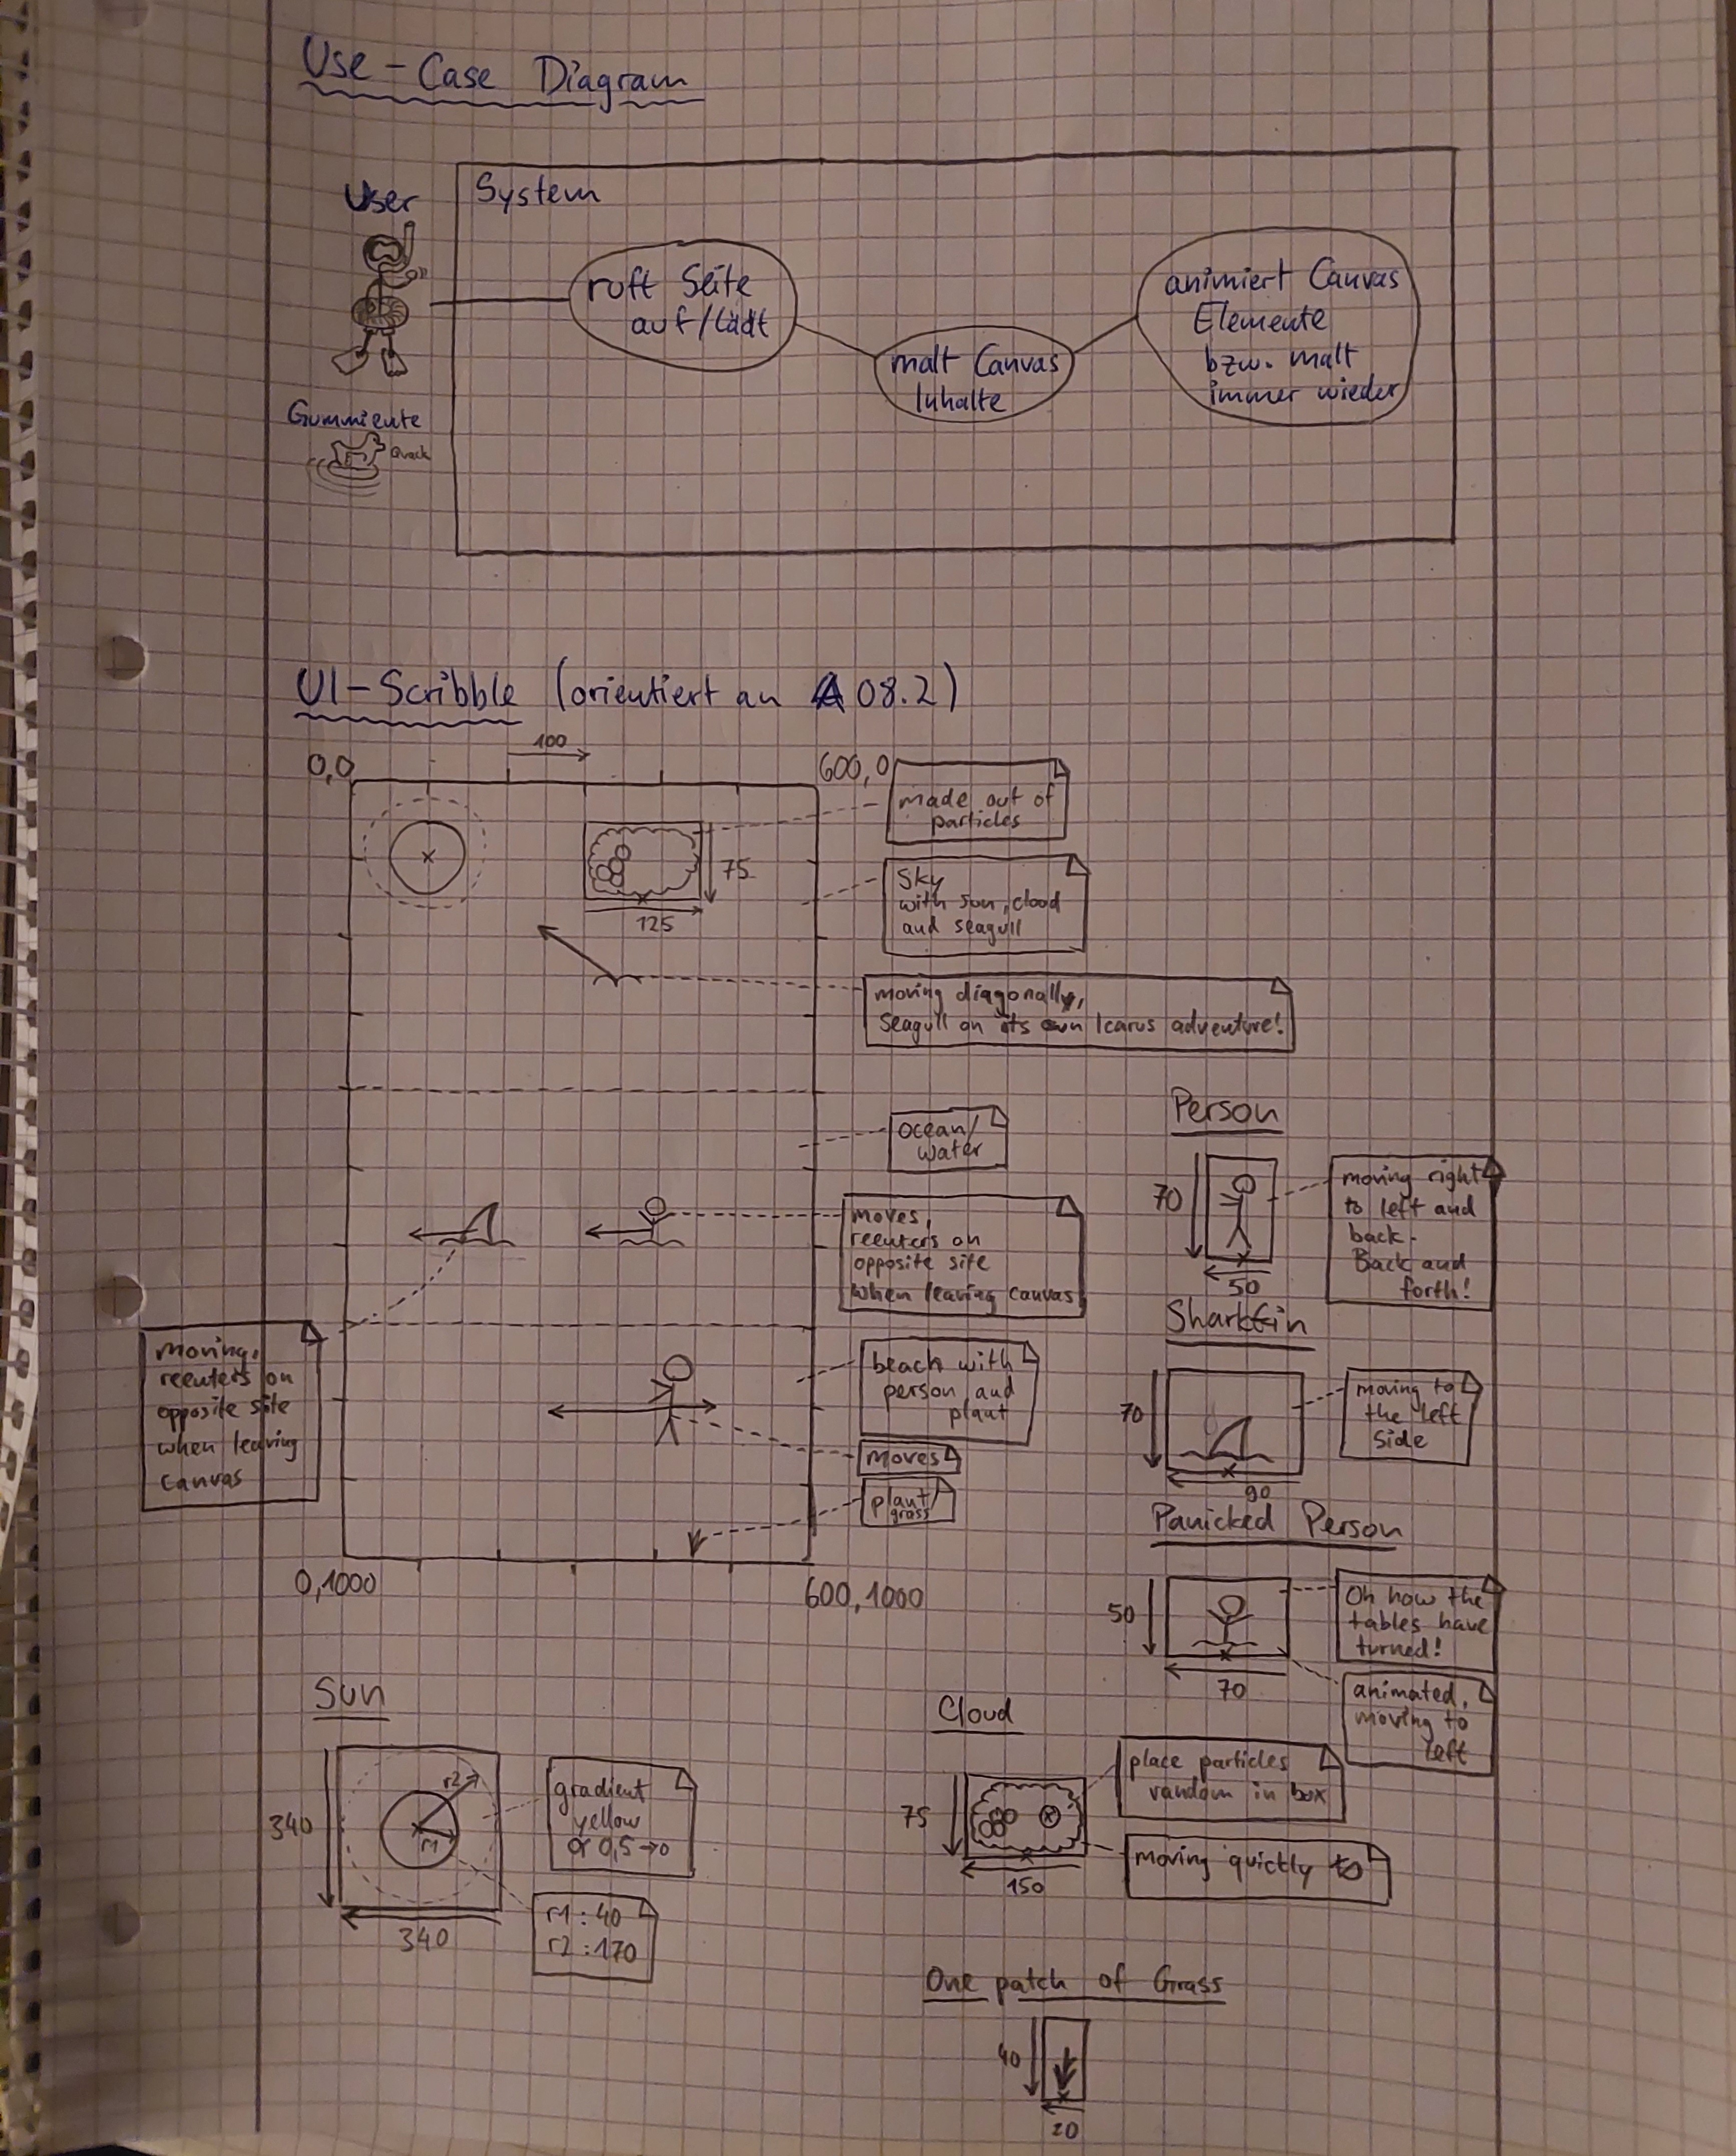 Use - Case Diagram
User
System
ruft Seite
auf/lädt
malt Canvas
Inhalte
animiert Canvas
Elemente
bzw. malt
immer wieder
Gummiente
Quack
UI-Scribble (orientiert an A 08.2)
100
0,0
600,0
made out of
particles
75
125
Sky
with sun, cloud
and seagull
moving diagonally,
Seagull on its own Icarus adventure!
ocean/
water
moves,
reenters on
opposite site
when leaving canvas
moving,
reenters on
opposite site
when leaving
canvas
beach with
person and
plant
moves
plant/
grass
0,1000
600,1000
Person
70
50
moving right
to left and
back.
Back and
forth!
Sharkfin
70
90
moving to
the left
side
Panicked Person
50
70
Oh how the
tables have
turned!
animated,
moving to
left
Sun
340
340
r2
r1
gradient
yellow
α 0,5→0
r1 : 40
r2 : 170
Cloud
75
150
place particles
random in box
moving quickly
One patch of Grass
40
20